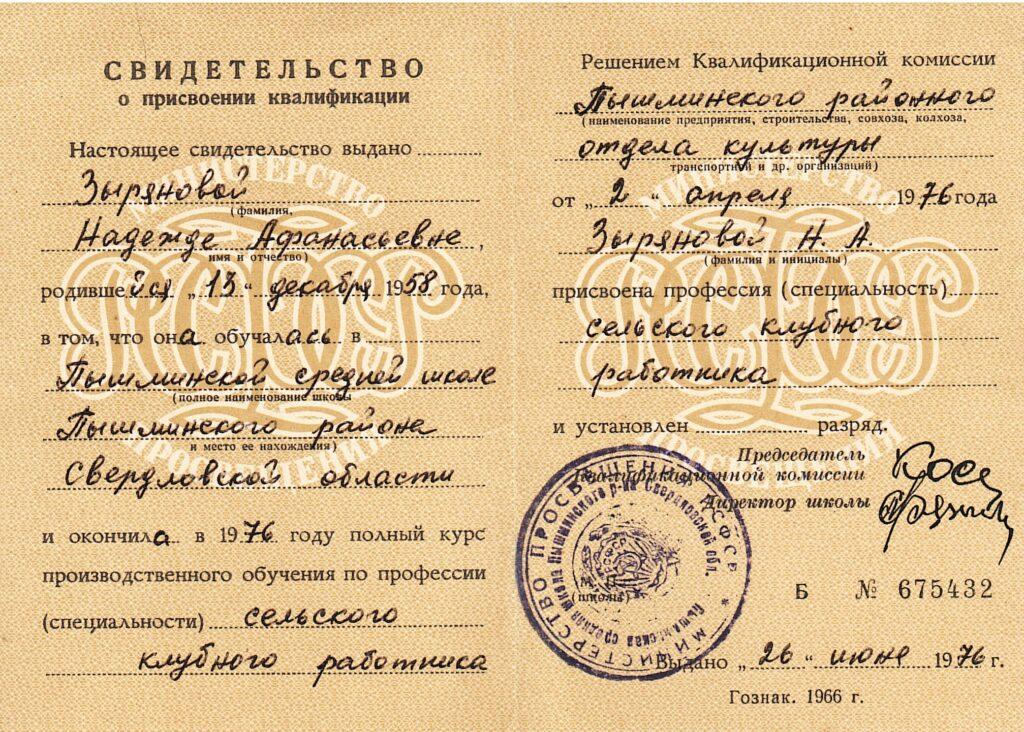 СВИДЕТЕЛЬСТВО
о присвоении квалификации
Настоящее свидетельство выдано
Зыряновой
(фамилия,
Надежде Афанасьевне,
имя и отчество)
родившейся „13" декабря 1958 года,
в том, что она обучалась в
Пышминской средней школе
(полное наименование школы
Пышминского района
и место ее нахождения)
Свердловской области
и окончила в 1976 году полный курс
производственного обучения по профессии
(специальности) сельского
клубного работника
МИНИСТЕРСТВО
РСФСР
ПРОСВЕЩЕНИЯ
Решением Квалификационной комиссии
Пышминского районного
(наименование предприятия, строительства, совхоза, колхоза,
отдела культуры
транспортной и др. организаций)
от „2" апреля 1976 года
Зыряновой Н. А.
(фамилия и инициалы)
присвоена профессия (специальность)
сельского клубного
работника
и установлен разряд.
Председатель
Квалификационной комиссии
Директор школы
МИНИСТЕРСТВО
РСФСР
ПРОСВЕЩЕНИЯ
МИНИСТЕРСТВО ПРОСВЕЩЕНИЯ РСФСР *
Пышминская средняя школа Пышминского р-на Свердловской обл.
М. П.
(школы)
Б № 675432
Выдано „26" июня 1976 г.
Гознак. 1966 г.